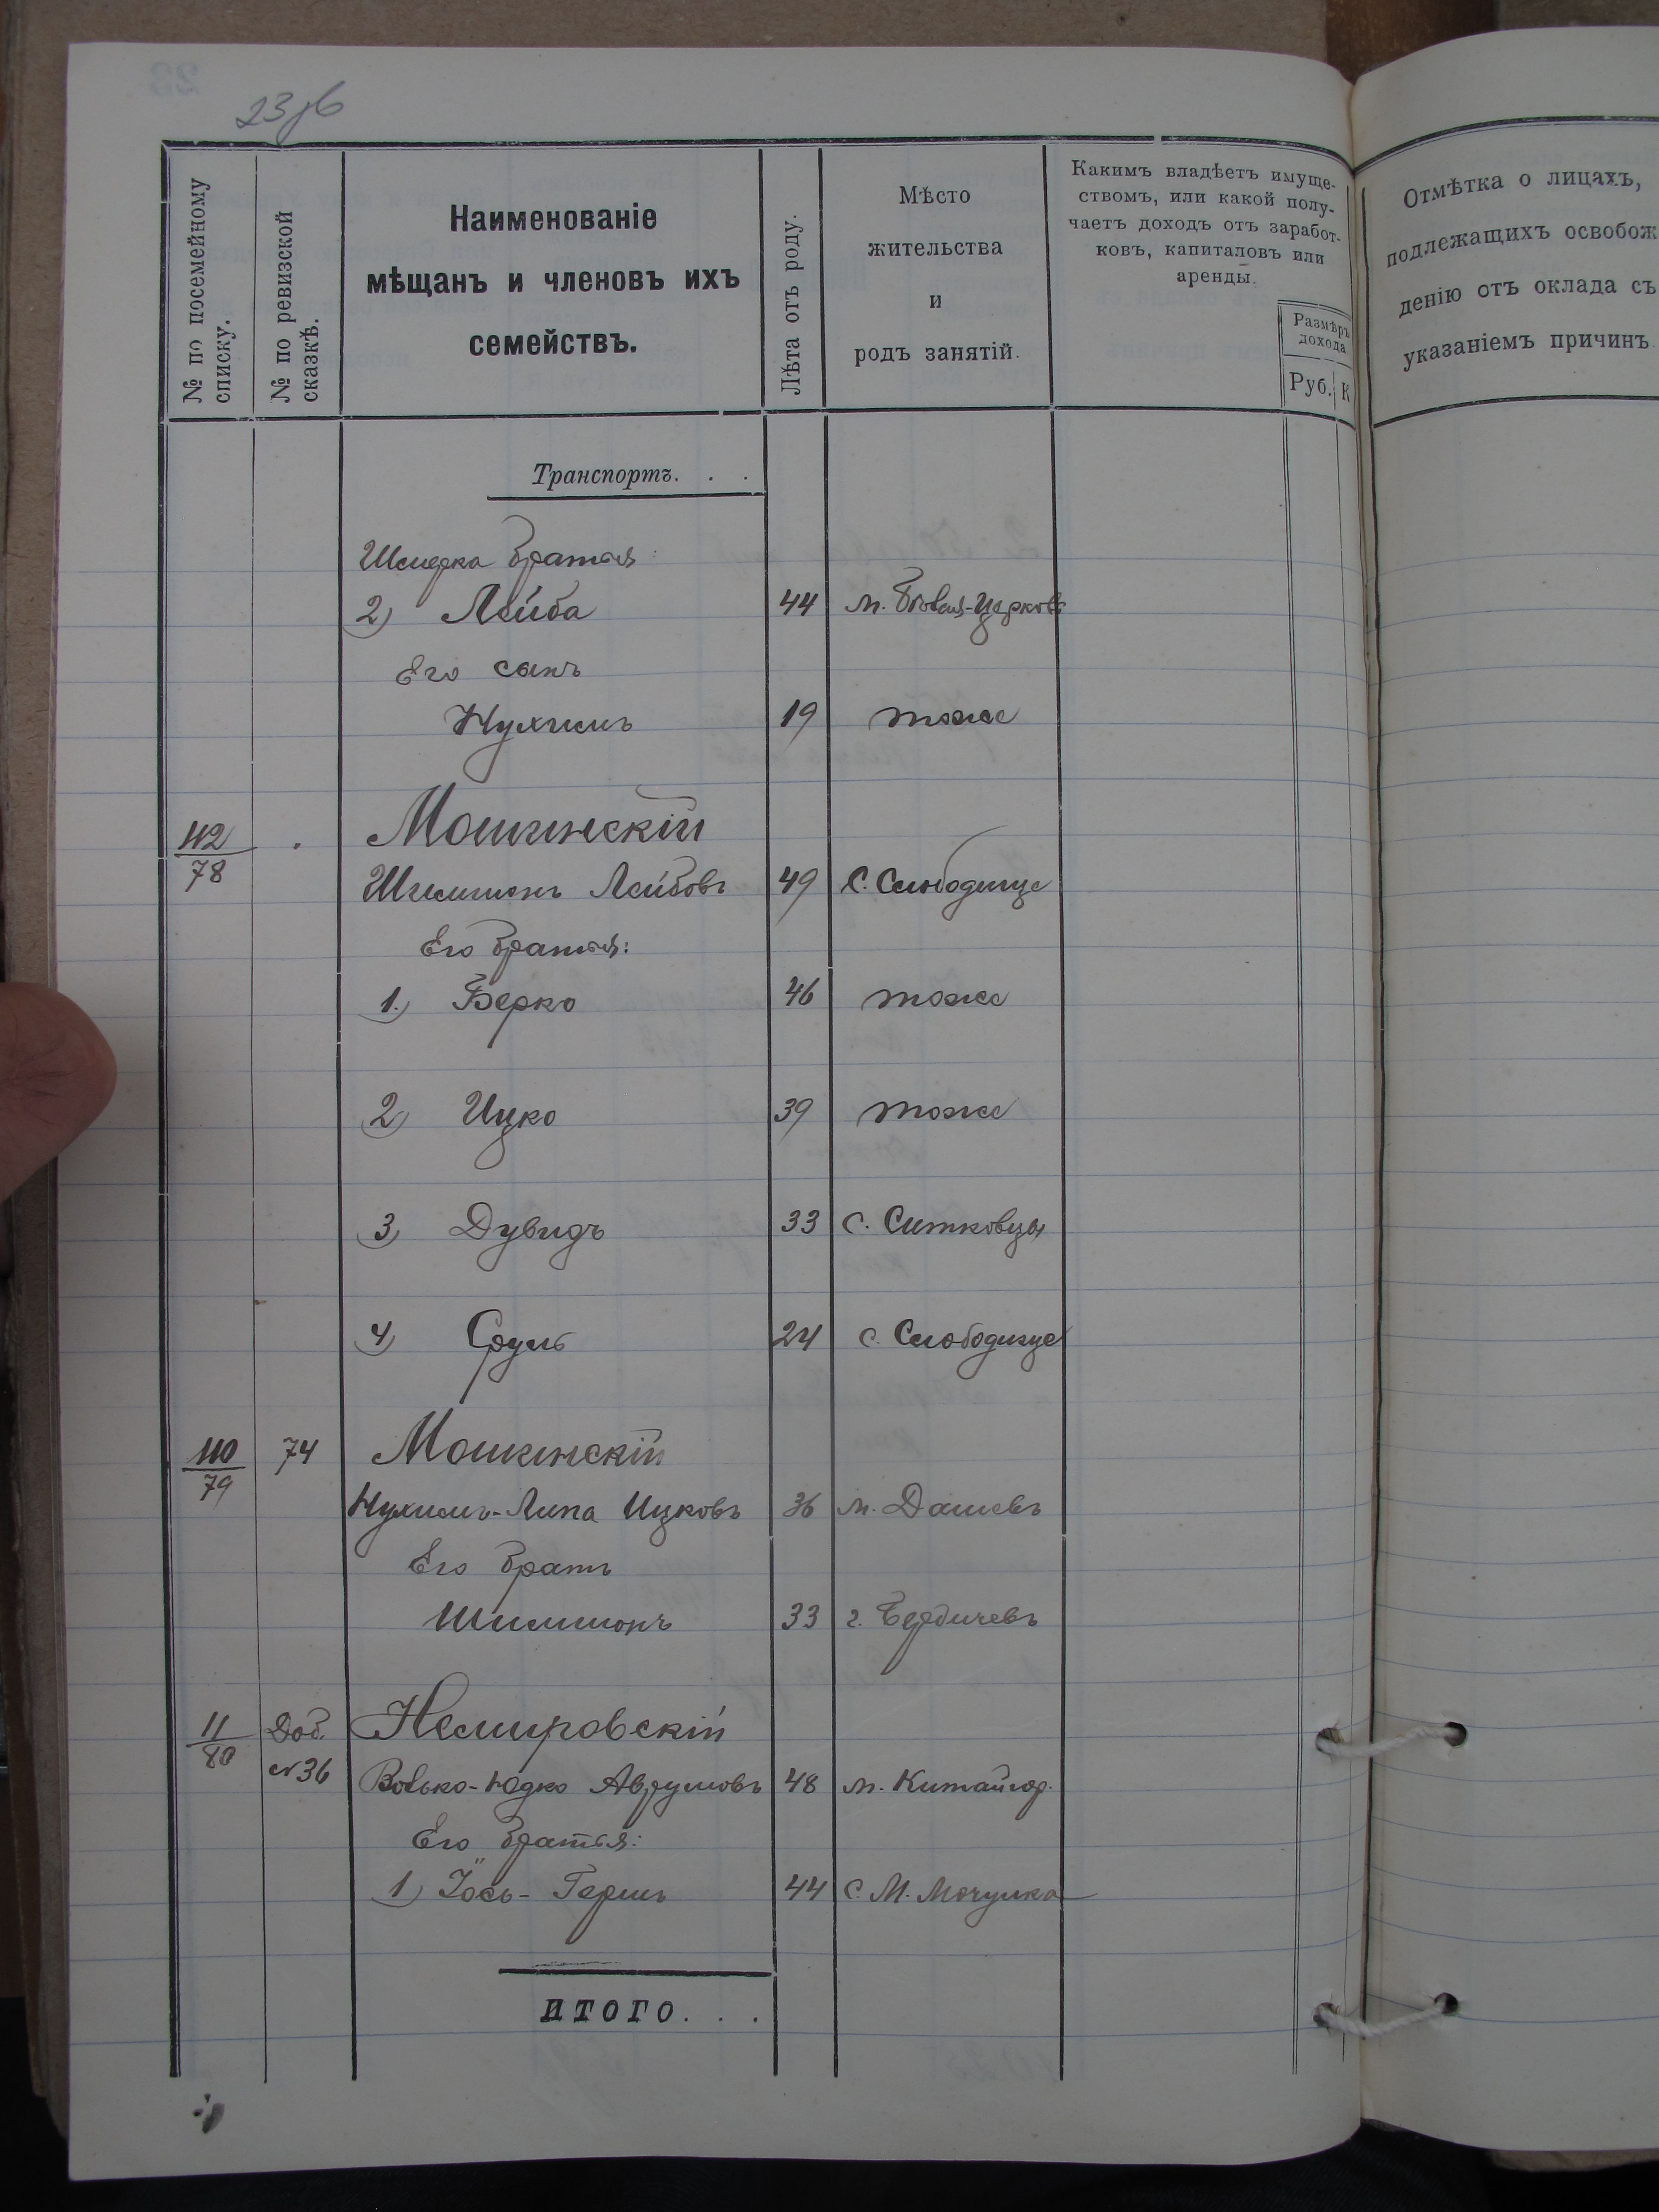 23 об
№ по посемейному списку.
№ по ревизской сказкѣ.
Наименованіе
мѣщанъ и членовъ ихъ
семействъ.
Лѣта отъ роду.
Мѣсто
жительства
и
родъ занятій.
Какимъ владѣетъ имуще-
ствомъ, или какой полу-
чаетъ доходъ отъ заработ-
ковъ, капиталовъ или
аренды.
Размѣръ
дохода
Руб. К
Отмѣтка о лицахъ,
подлежащихъ освобож
денію отъ оклада съ
указаніемъ причинъ
Транспортъ. . .
Шмерка братья:
2) Лейба 44 м. Бѣлая-Церковь
Его сынъ
Нухимъ 19 тоже
112/78 Мошкинскій
Шимшонъ Лейбовъ 49 С. Слободище
Его братья:
1.) Берко 46 тоже
2) Ицко 39 тоже
3) Дувидъ 33 с. Ситковцы
4) Сруль 24 с. Слободище
110/79 74 Мошкинскій
Нухимъ-Липа Ицковъ 36 м. Дашевъ
Его братъ
Шимшонъ 33 г. Бердичевъ
11/80 Доб. Немировскій
№36 Волько-Юдко Аврумовъ 48 м. Китайгор.
Его братья:
1) Іось-Гершъ 44 с. М. Мочулка
ИТОГО. . .